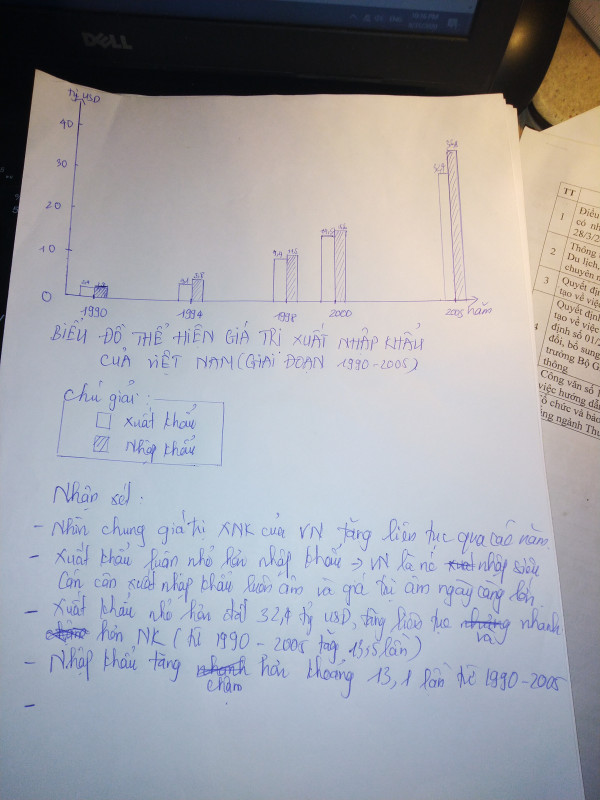 DELL
tỷ USD
40
30
20
10
0
1990
1994
1998
2000
2005 năm
BIỂU ĐỒ THỂ HIỆN GIÁ TRỊ XUẤT NHẬP KHẨU
CỦA VIỆT NAM (GIAI ĐOẠN 1990-2005)
Chú giải :
Xuất khẩu
Nhập khẩu
Nhận xét :
- Nhìn chung giá trị XNK của VN tăng liên tục qua các năm.
- Xuất khẩu luôn nhỏ hơn nhập khẩu → VN là nc nhập siêu
Cán cân xuất nhập khẩu luôn âm và giá trị âm ngày càng lớn
- Xuất khẩu nhỏ hơn đạt 32,4 tỷ USD, tăng liên tục và nhanh
hơn NK (từ 1990 - 2005 tăng 13,5 lần)
- Nhập khẩu tăng chậm hơn khoảng 13,1 lần từ 1990-2005
-
TT
1
Điều
có nh
28/3/2
2
Thông
Du lịch,
chuyên n
3
Quyết địn
tạo về việc
4
Quyết định
tạo về việc
định số 01/2
đổi, bổ sung
trưởng Bộ G
thông
Công văn số 1
việc hướng dẫn